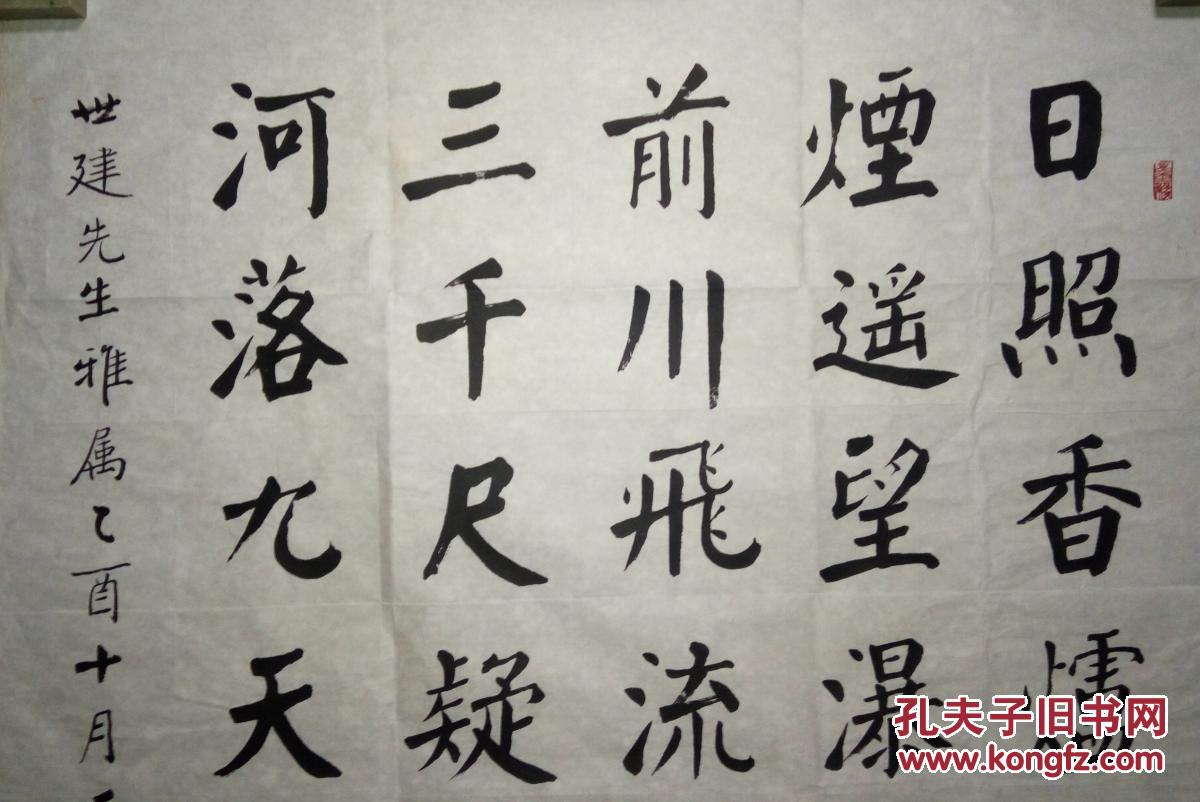 日照香爐
煙遥望瀑
前川飛流
三千尺疑
河落九天
世建先生雅属乙酉十月
孔夫子旧书网
www.kongfz.com